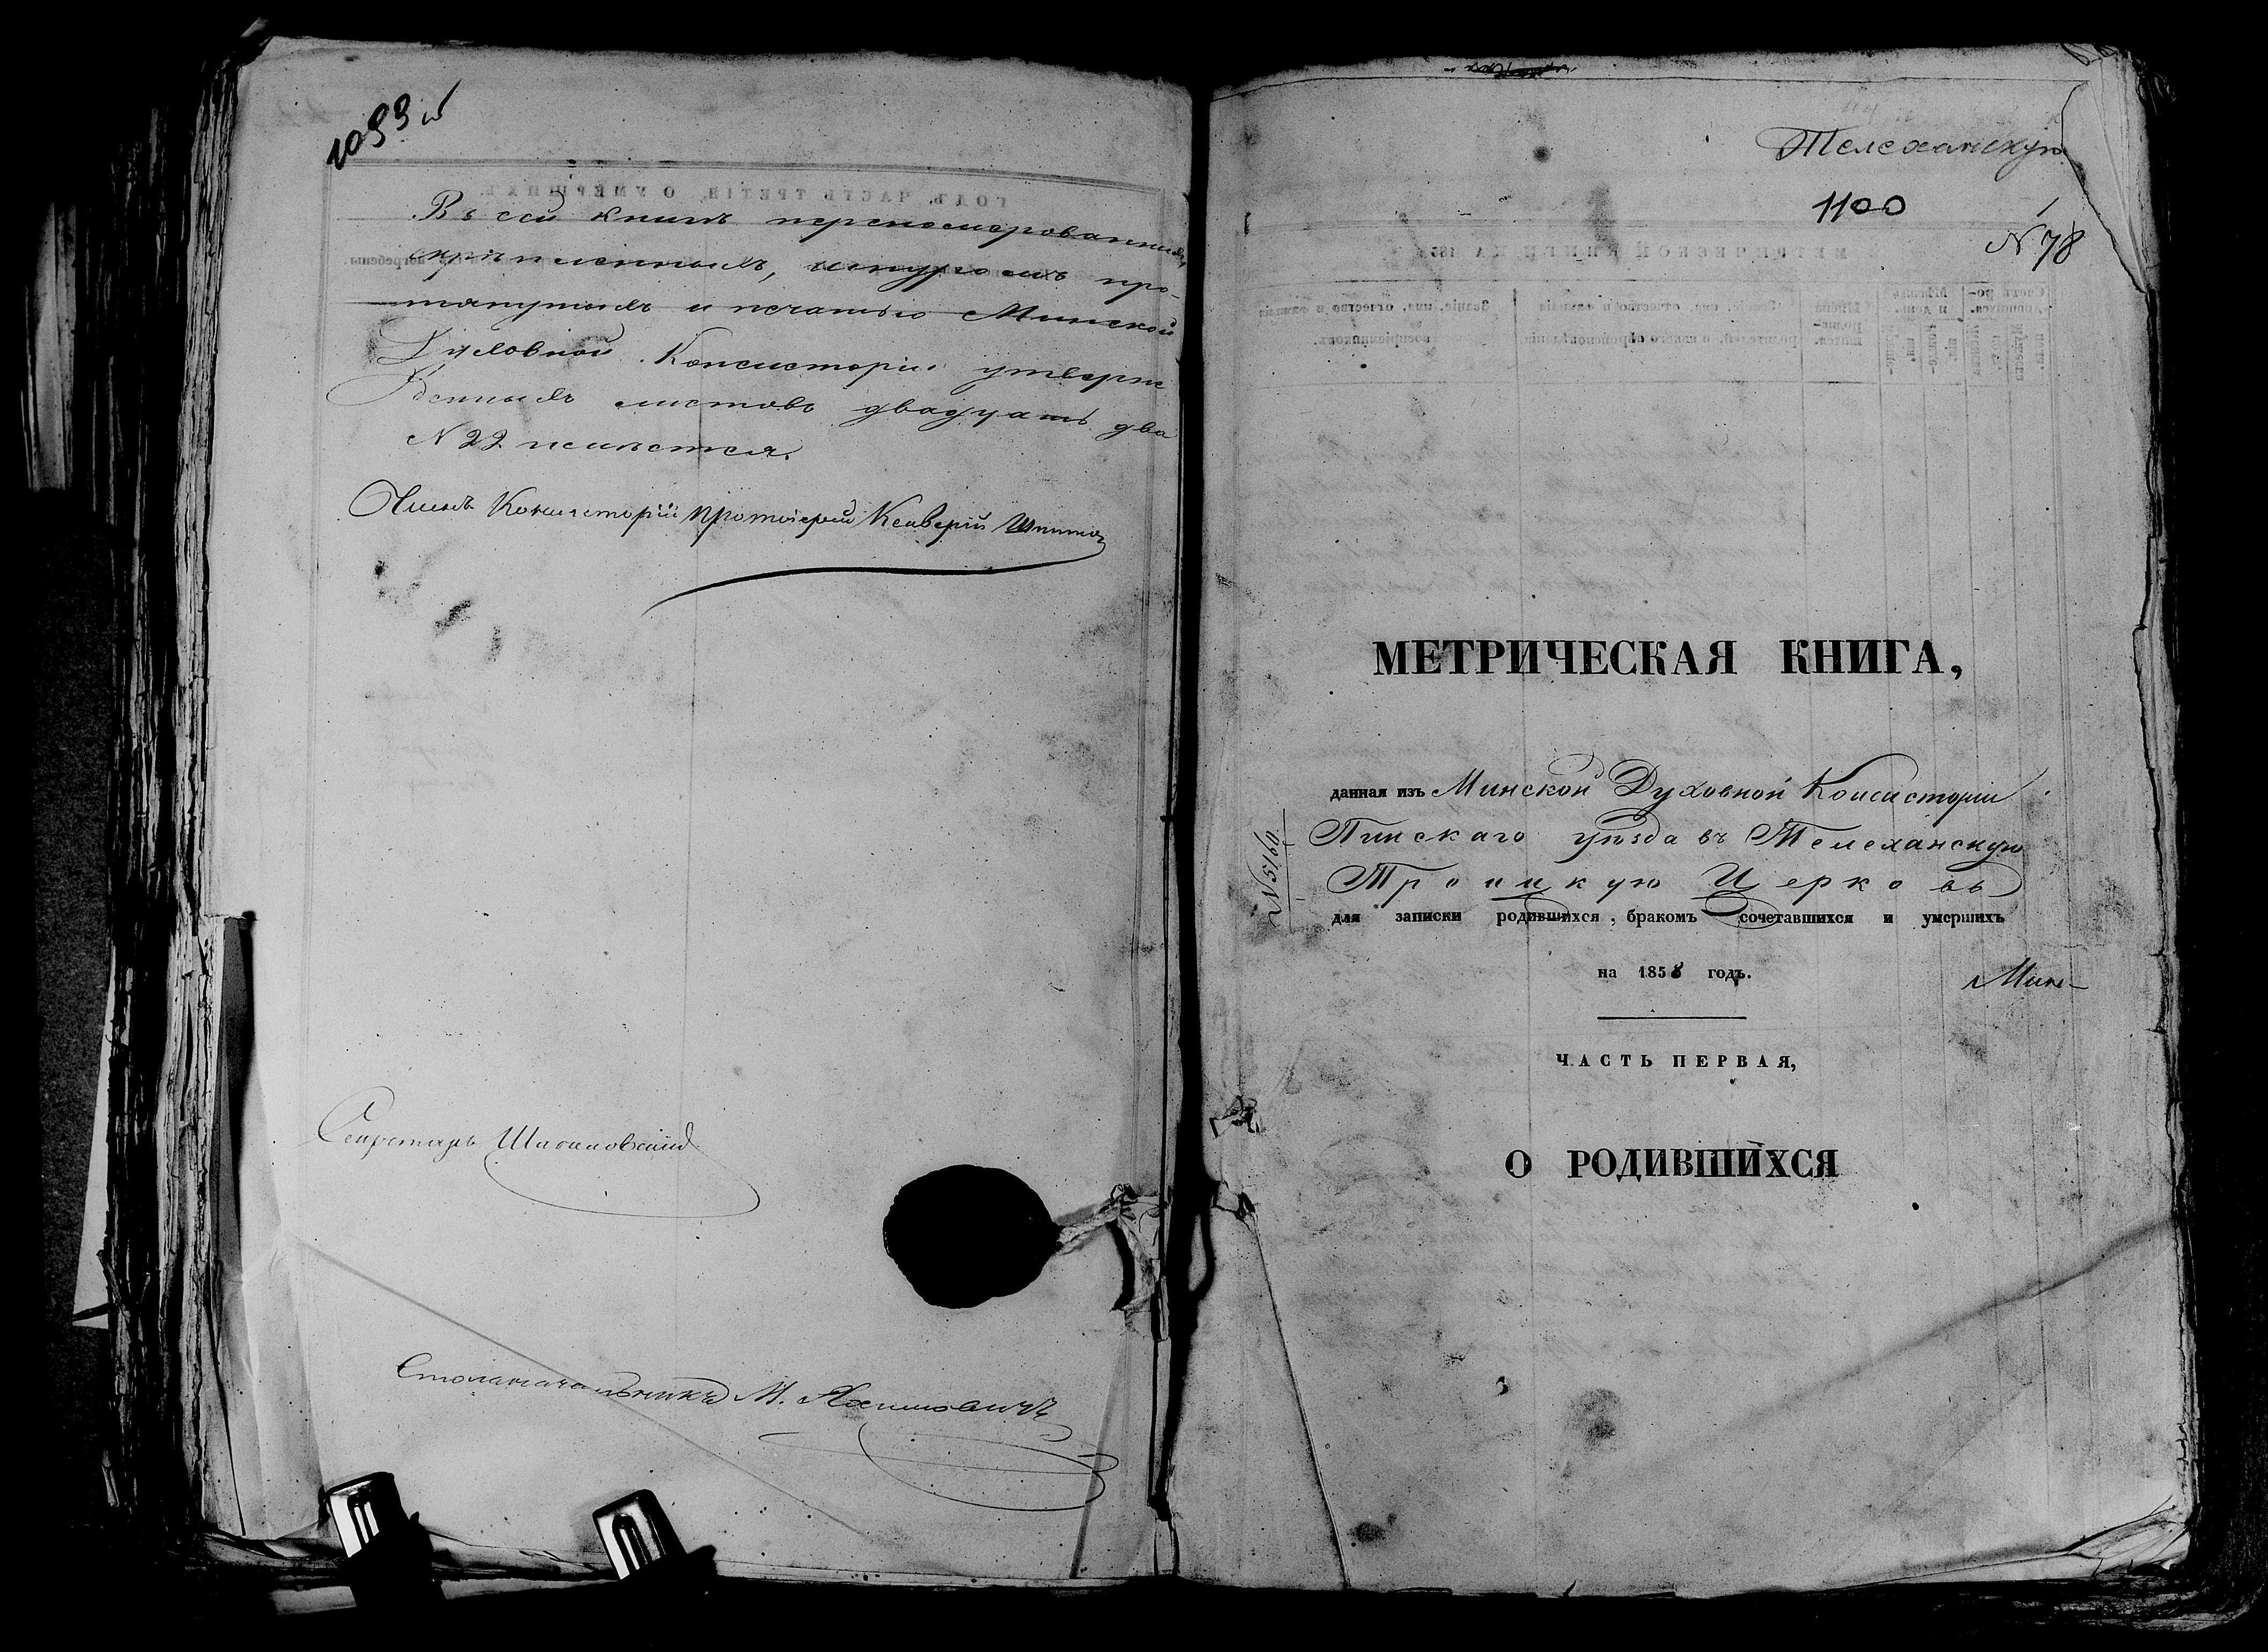 1099 об
Въ сей книгѣ перенумерованныхъ,
скрѣпленныхъ, шнуромъ про-
тянутыхъ и печатью Минской
Духовной Консисторіи утверж
денныхъ листовъ двадцать два
N 22 имѣется.
Членъ Консисторіи Протоіерей Ксаверій
Секретарь
Столоначальникъ М.
Телеханскую
1100
N 78
МЕТРИЧЕСКАЯ КНИГА,
данная изъ Минской Духовной Консисторіи
Пинскаго уѣзда въ Телеханскую
Троицкую Церковь
N 5160
для записки родившихся, бракомъ сочетавшихся и умершихъ
на 1858 годъ.
Мин-
ЧАСТЬ ПЕРВАЯ,
О РОДИВШИХСЯ